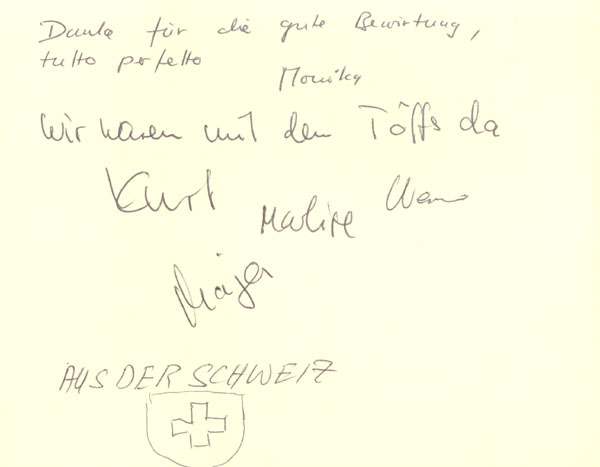 Danke für die gute Bewirtung,
tutto perfetto
Monika
Wir waren mit den Töffs da
Kurt Marlise
AUS DER SCHWEIZ